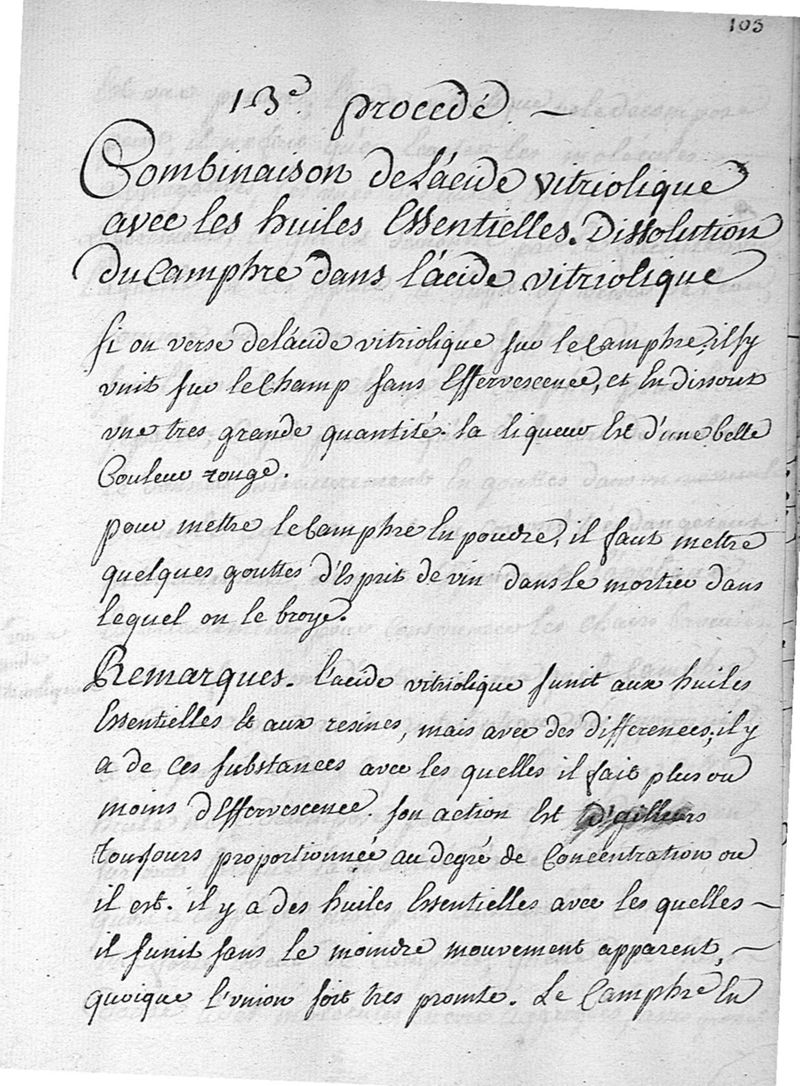 103
13.e procedé
Combinaison de L'acide vitriolique
avec les huiles Essentielles. Dissolution
du Camphre dans l'acide vitriolique
si on verse de L'acide vitriolique sur le Camphre, il s'y
vnit sur le Champ sans Effervescence, et En dissout
vne tres grande quantité. la liqueur Est d'une belle
Couleur rouge.
pour mettre le Camphre En poudre, il faut mettre
quelques gouttes d'Esprit de vin dans le mortier dans
lequel on le broye.
Remarques. l'acide vitriolique s'unit aux huiles
Essentielles Et aux resines, mais avec des differences; il y
a de ces substances avec les quelles il fait plus ou
moins d'Effervescence. son action Est d'ailleurs
toujours proportionnée au degré de Concentration ou
il est. il y a des huiles Essentielles avec les quelles
il s'unit sans le moindre mouvement apparent,
quoique l'vnion soit tres promte. Le Camphre En